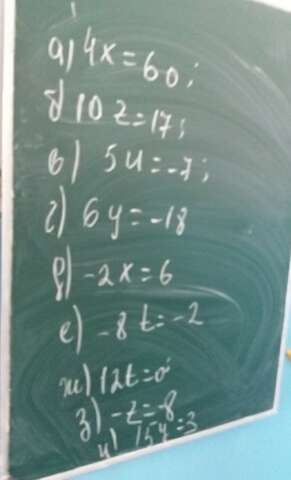 а) 4x=60;
б) 10z=17;
в) 5u=-7;
г) 6y=-18
д) -2x=6
е) -8t=-2
ж) 12t=0
з) -z=-8
и) 15y=3